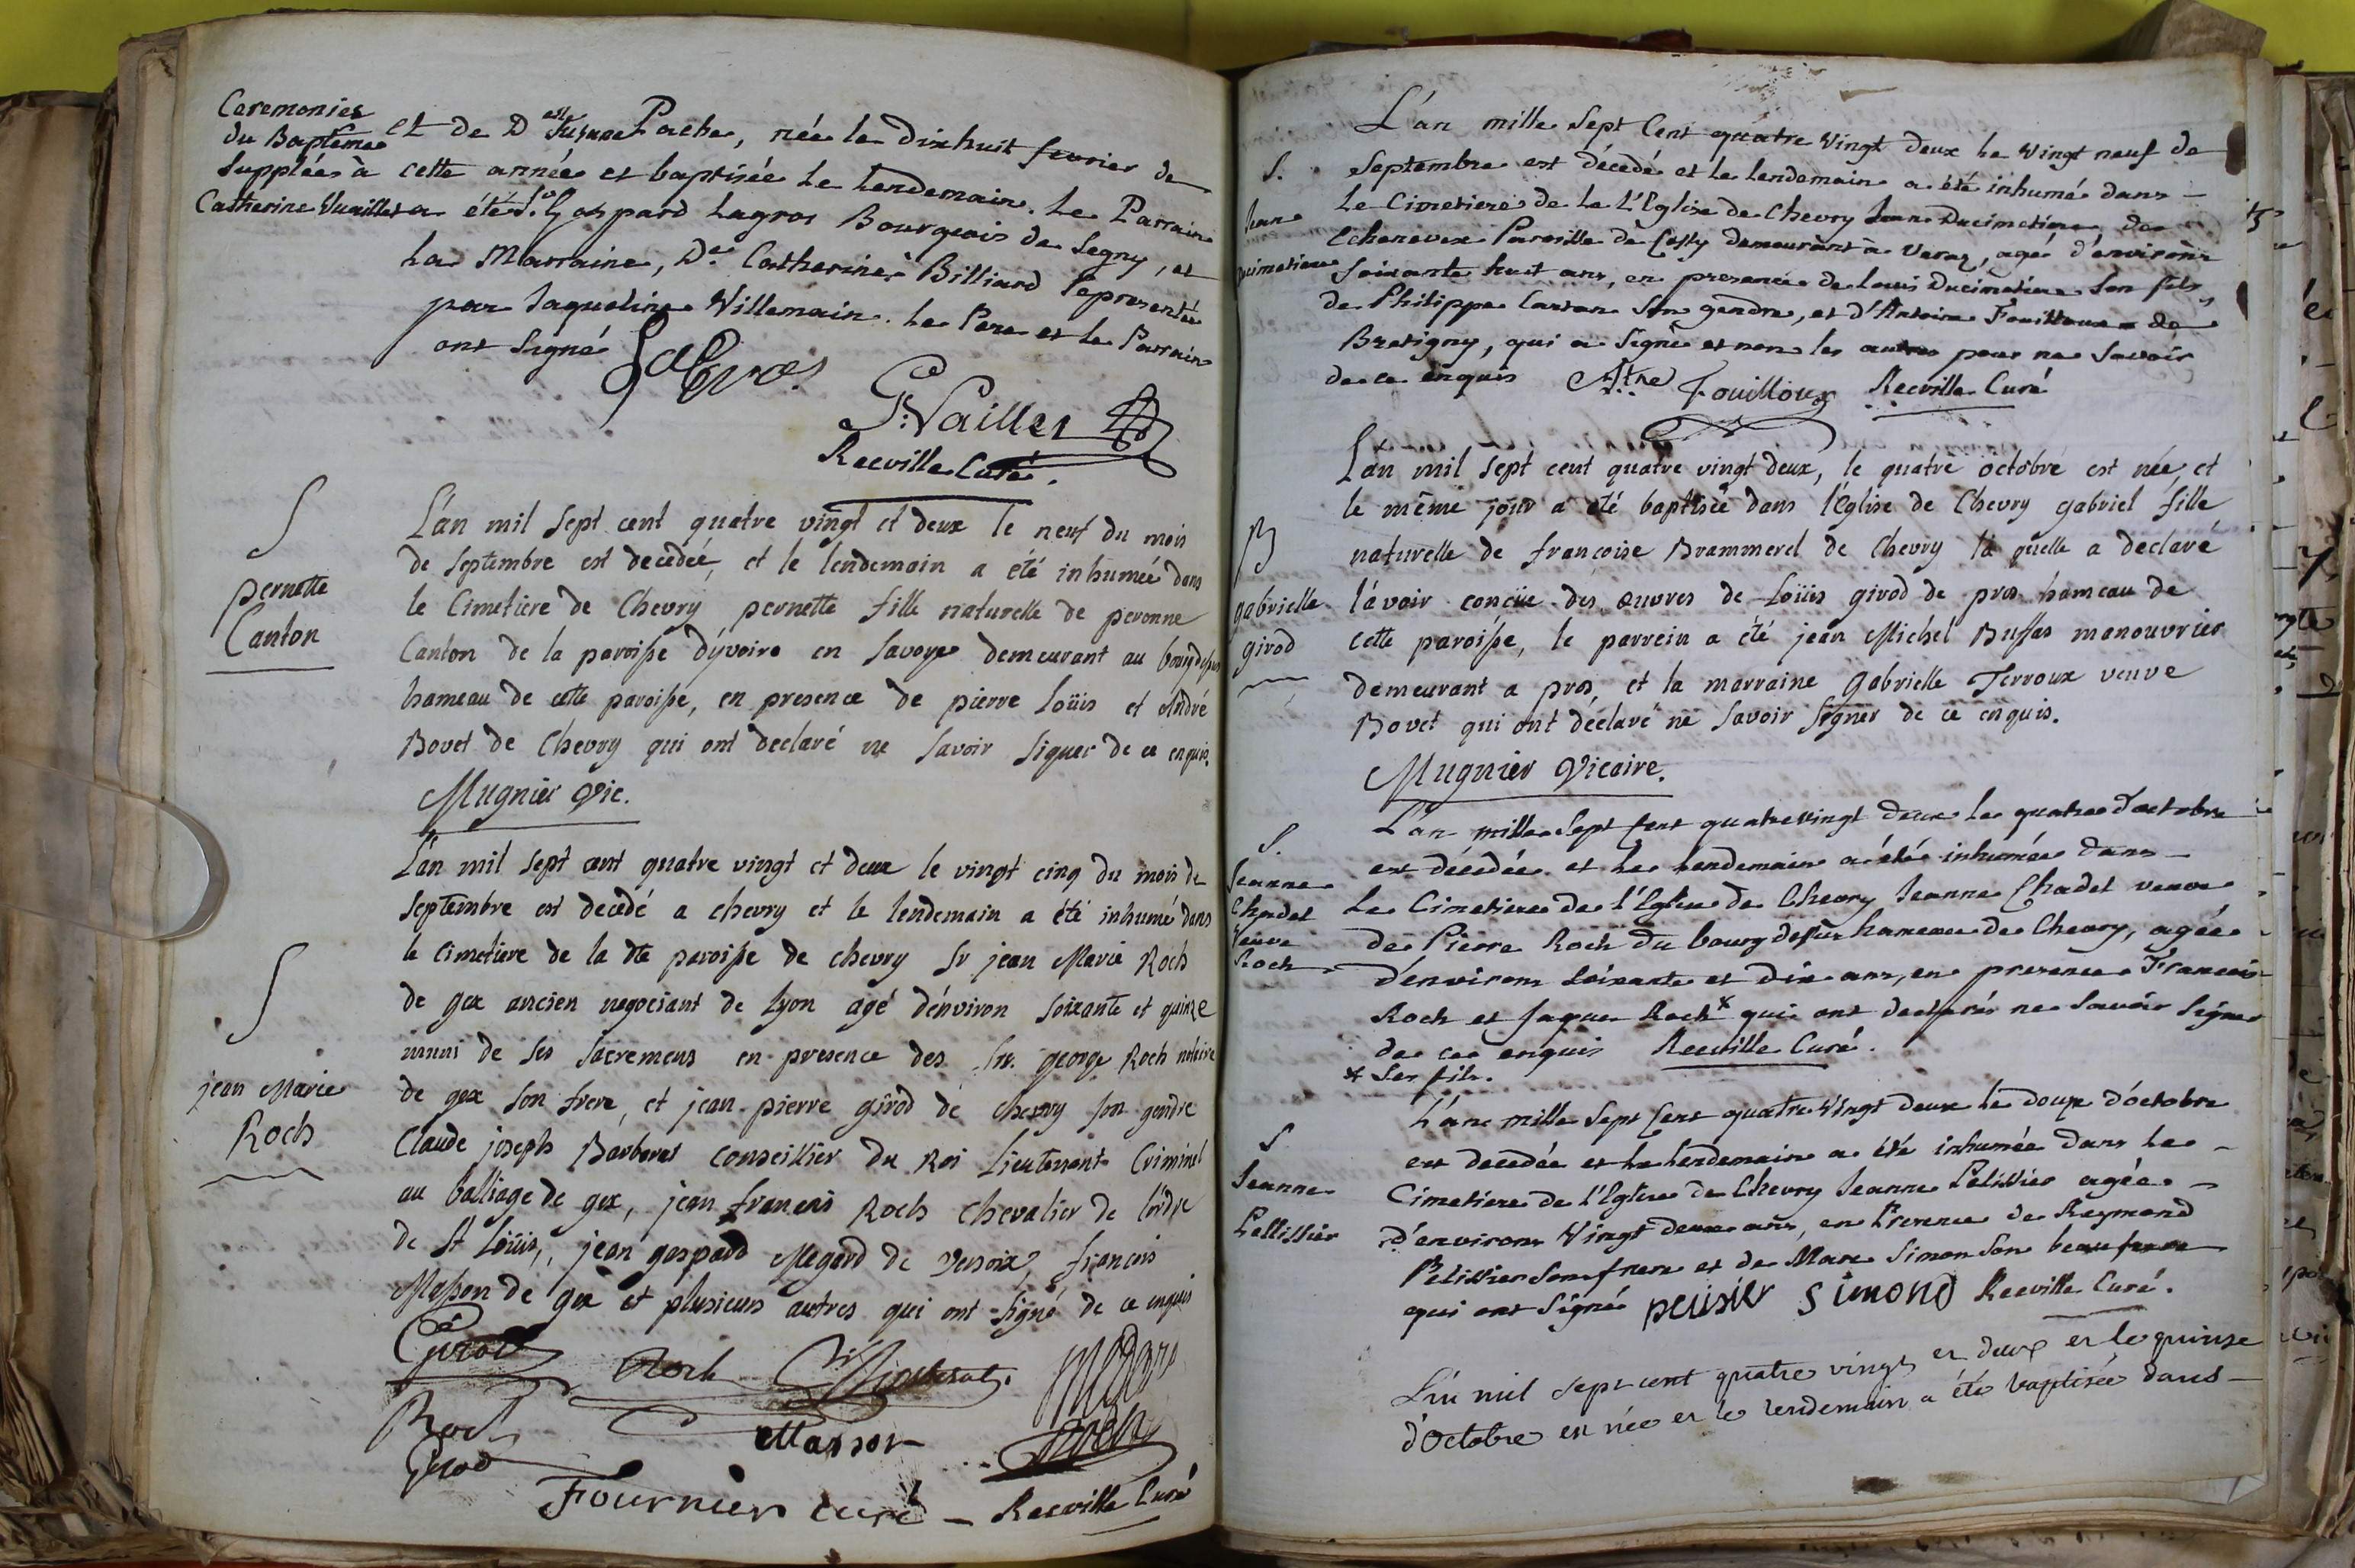 Ceremonies
du Baptême
Supplées à
Catherine Vuaillet
et de D.elle Susane Pache, née le dixhuit fevrier de
cette année et baptisée le lendemain. Le Parrain
a été S.r Gaspard Lagros Bourgeois de Segny, et
la Marraine, D.e Catherine Billiard representée
par Jaqueline Villemain. Le Pere et le Parrain
ont Signé
G. Vaillet
Reeville Curé.
S
pernette
Canton
L'an mil sept cent quatre vingt et deux le neuf du mois
de septembre est decedeé, et le lendemain a été inhumeé dans
le Cimetiere de Chevry pernette fille naturelle de peronne
Canton de la paroisse d'yvoire en Savoye demeurant au bourgdessus
hameau de cette paroisse, en presence de pierre Loüis et André
Bovet de Chevry qui ont declaré ne savoir signer de ce enquis.
Mugnier Vic.
S
jean Marie
Roch
L'an mil sept cent quatre vingt et deux le vingt cinq du mois de
septembre est decedé a chevry et le lendemain a été inhumé dans
le cimetiere de la dte paroisse de chevry Sr jean Marie Roch
de gex ancien negociant de Lyon agé d'environ soixante et quinze
muni de ses sacremens en presence des Srs. george Roch notaire
de gex son frere, et jean pierre girod de chevry son gendre
Claude joseph Barberat conseillier du Roi Lieutenant Criminel
au balliage de gex, jean francois Roch chevalier de l'ordre
de St Loüis, jean gaspard Megard de versoix, francois
Masson de gex et plusieurs autres qui ont signé de ce enquis
Girod Roch
Roch Masson
Girod
Fournier curé - Reeville Curé
S.
Jean
Ducimetiere
L'an mille Sept Cent quatre Vingt deux le Vingt neuf de
Septembre est décedé et le lendemain a été inhumé dans
le Cimetiere de la L'Eglise de Chevry Jean Ducimetiere de
Echenevex Paroisse de Cessy demeurant à Veraz, agé d'environ
Soixante huit ans, en presence de Louis Ducimetiere Son fils,
de Philippe Cartan Son gendre, et d'Antoine Fouilloux de
Bretigny, qui a Signé et non les autres pour ne Savoir
de ce enquis Atne Fouilloux Reeville Curé
B
gabrielle
girod
L'an mil sept cent quatre vingt deux, le quatre octobre est née, et
le même jour a été baptisée dans l'Eglise de Chevry gabriel fille
naturelle de francoise Brammerel de Chevry la quelle a declaré
l'avoir conçüe des œuvres de Loüis girod de pros hameau de
cette paroisse, le parrein a été jean Michel Buffas manouvrier
demeurant a pros, et la marraine gabrielle Terroux veuve
Bovet qui ont déclaré ne savoir signer de ce enquis.
Mugnier Vicaire.
S.
Jeanne
Chadel
Veuve
Roch
L'an mille Sept Cent quatrevingt deux le quatre d'octobre
est décedée et le lendemain a été inhumée dans
le Cimetiere de l'Eglise de Chevry Jeanne Chadel veuve
de Pierre Roch du bourg dessus hameau de Chevry, agée
d'environ Soixante et dix ans, en presence Francois
Roch et Jaques Roch * qui ont declarés ne Savoir Signer
de ce enquis Reeville Curé.
* Ses fils.
S
Jeanne
Pellissier
L'an mille Sept Cent quatre Vingt deux le douze d'octobre
est decedée et le lendemain a été inhumée dans le
Cimetiere de l'Eglise de Chevry Jeanne Pelissier agée
d'environ Vingt deux ans, en Presence de Reymond
Pelissier Son frere et de Marc Simon Son beau frere
qui ont Signé pelisier Simond Reeville Curé.
L'an mil sept cent quatre vingt et deux et le quinze
d'Octobre est née et le lendemain a été baptisée dans